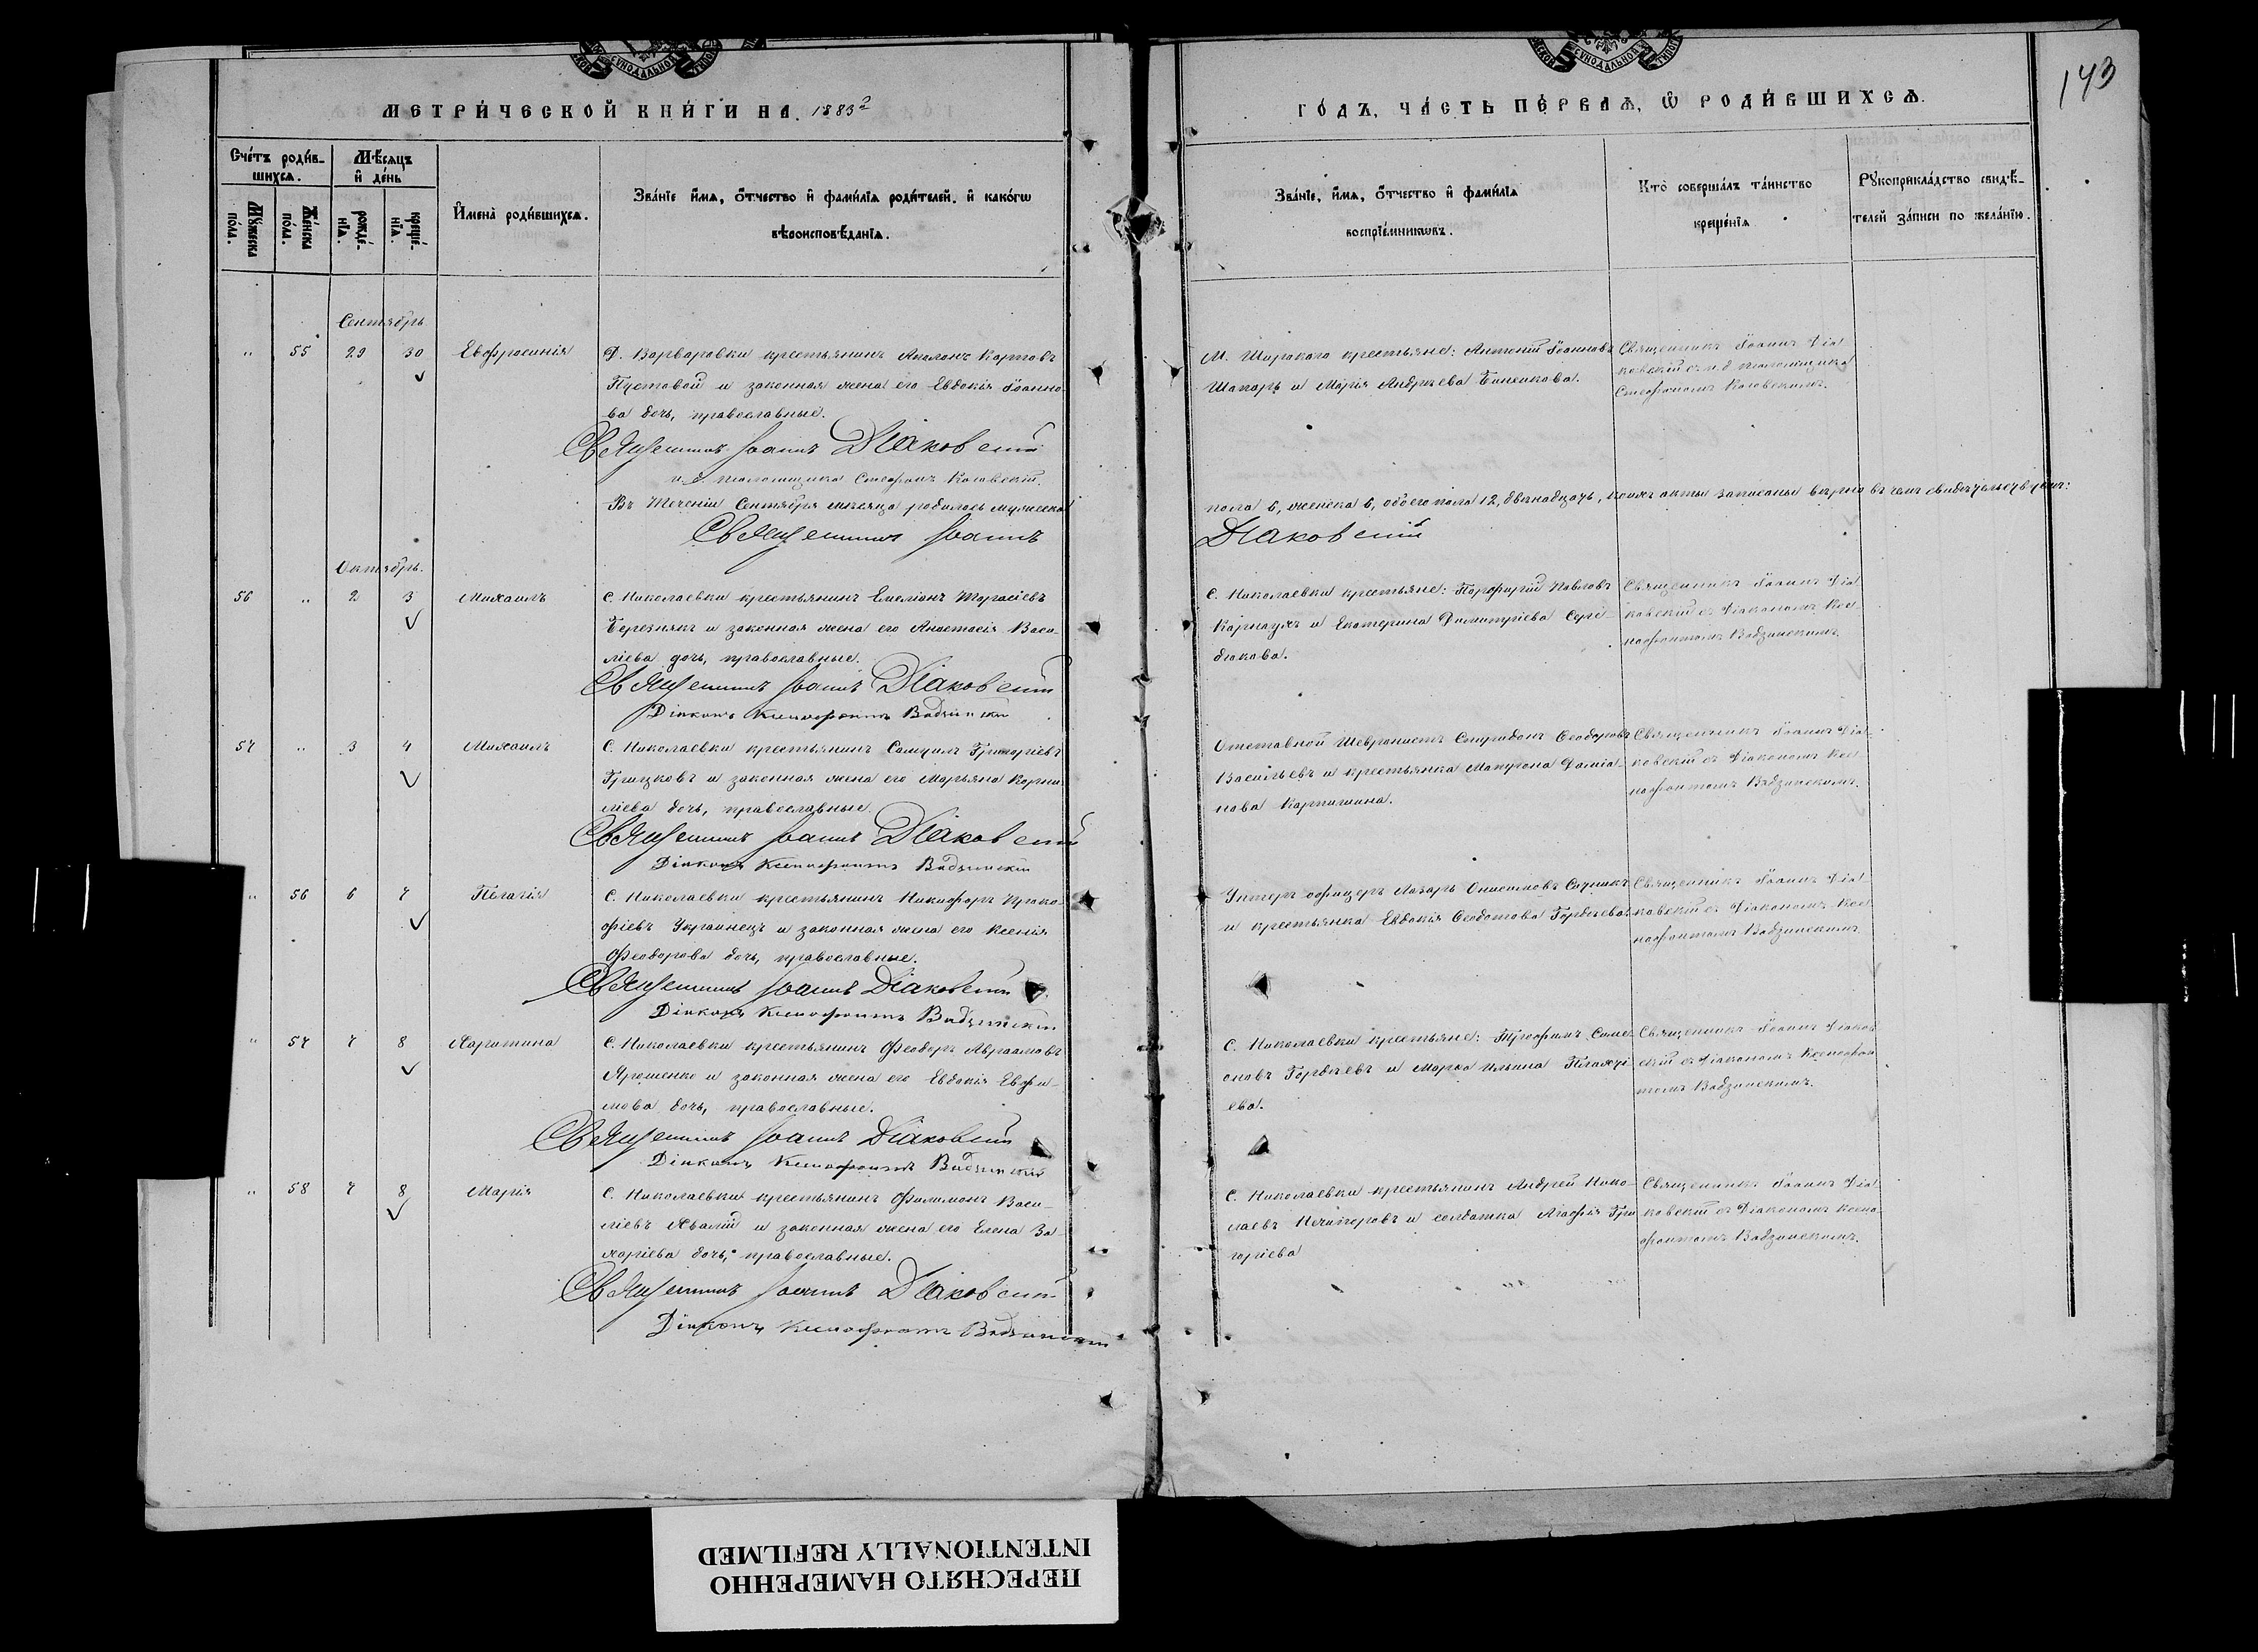 МЕТРИ́ЧЕСКОЙ КНИ́ГИ НА 1883г
ГО́ДЪ, ЧА́СТЬ ПЕ́РВАѦ, Ѡ҆ РОДИ́ВШИХСѦ.
143
Сче́тъ роди́в-
шихсѧ.
Мѣ́сѧцъ
и҆ де́нь
Мꙋ́жеска
по́ла.
Же́нска
по́ла.
рожде́-
нїѧ.
креще́-
нїѧ.
И҆мена̀ роди́вшихсѧ.
Зва́нїе и҆́мѧ, ѻ҆́тчество и҆ фами́лїѧ роди́телей, и҆ како́гѡ
вѣроисповѣ́данїѧ.
Зва́нїе, и҆́мѧ, ѻ҆́тчество и҆ фами́лїѧ
воспрїе́мникѡвъ.
Кто̀ соверша́лъ та́инство
креще́нїѧ
Рꙋкоприкла́дство свидѣ́-
телей за́писи по жела́нїю.
Сентябрь
" 55 29 30 Евфросинія
Д. Варваровки крестьянинъ Карповъ
Пустовой и законная жена его Евдокія Іоанно-
ва дочь, православные.
Священникъ Іоаннъ Діаковскій
и. д. псаломщика Стефанъ
М. Широкаго крестьяне: Антоній Іоанновъ
Шапарь и Марія Андреева
Священникъ Іоаннъ Діа-
ковскій съ и. д. псаломщика
Стефаномъ
Въ теченіи Сентября мѣсяца родилось мужеска
пола 6, женска 6, обоего пола 12, двѣнадцать, коихъ акты записаны вѣрно въ чемъ свидѣтельствуемъ:
Священникъ Іоаннъ
Діаковскій
Октябрь.
56 " 2 3 Михаилъ
С. Николаевки крестьянинъ Емеліанъ Тарасіевъ
Березнякъ и законная жена его Анастасія Васи-
ліева дочь, православные.
Священникъ Іоаннъ Діаковскій
Діаконъ Ксенофонтъ Вадзинскій
С. Николаевки крестьяне: Порфирій Павловъ
Карнаухъ и Екатерина Димитріева Серді-
юкова.
Священникъ Іоаннъ Діа-
ковскій съ Діакономъ Ксе-
нофонтомъ Вадзинскимъ.
57 " 3 4 Михаилъ
С. Николаевки крестьянинъ Самуилъ Григоріевъ
Грицковъ и законная жена его Марьяна Корни-
ліева дочь, православные.
Священникъ Іоаннъ Діаковскій
Діаконъ Ксенофонтъ Вадзинскій
Отставной Шевронистъ Спиридонъ Ѳеодоровъ
Васильевъ и крестьянка Матрона Даміа-
нова
Священникъ Іоаннъ Діа-
ковскій съ Діакономъ Ксе-
нофонтомъ Вадзинскимъ.
" 56 6 7 Пелагія
С. Николаевки крестьянинъ Никифоръ Проко-
фіевъ Украинецъ и законная жена его Ксенія
Феодорова дочь, православные.
Священникъ Іоаннъ Діаковскій
Діаконъ Ксенофонтъ Вадзинскій
Унтеръ офицеръ Лазарь
и крестьянка Евдокія Ѳеодотова Гордѣева
Священникъ Іоаннъ Діа-
ковскій съ Діакономъ Ксе-
нофонтомъ Вадзинскимъ
" 57 7 8 Харитина
С. Николаевки крестьянинъ Феодоръ Авраамовъ
Ярошенко и законная жена его Евдокія Евфи-
мова дочь, православные.
Священникъ Іоаннъ Діаковскій
Діаконъ Ксенофонтъ Вадзинскій
С. Николаевки крестьяне: Трофимъ Симе-
оновъ Гордѣевъ и Марѳа Ильина
ева.
Священникъ Іоаннъ Діаков-
скій съ Діакономъ Ксенофон-
томъ Вадзинскимъ.
" 58 7 8 Марія
С. Николаевки крестьянинъ Филимонъ Васи-
ліевъ и законная жена его Елена За-
харіева дочь, православные.
Священникъ Іоаннъ Діаковскій
Діаконъ Ксенофонтъ Вадзинскій
С. Николаевки крестьянинъ Андрей Нико-
лаевъ и солдатка Агафія Гри-
горіева
Священникъ Іоаннъ Діа-
ковскій съ Діакономъ Ксено-
фонтомъ Вадзинскимъ.
ПЕРЕСНЯТО НАМЕРЕННО
INTENTIONALLY REFILMED